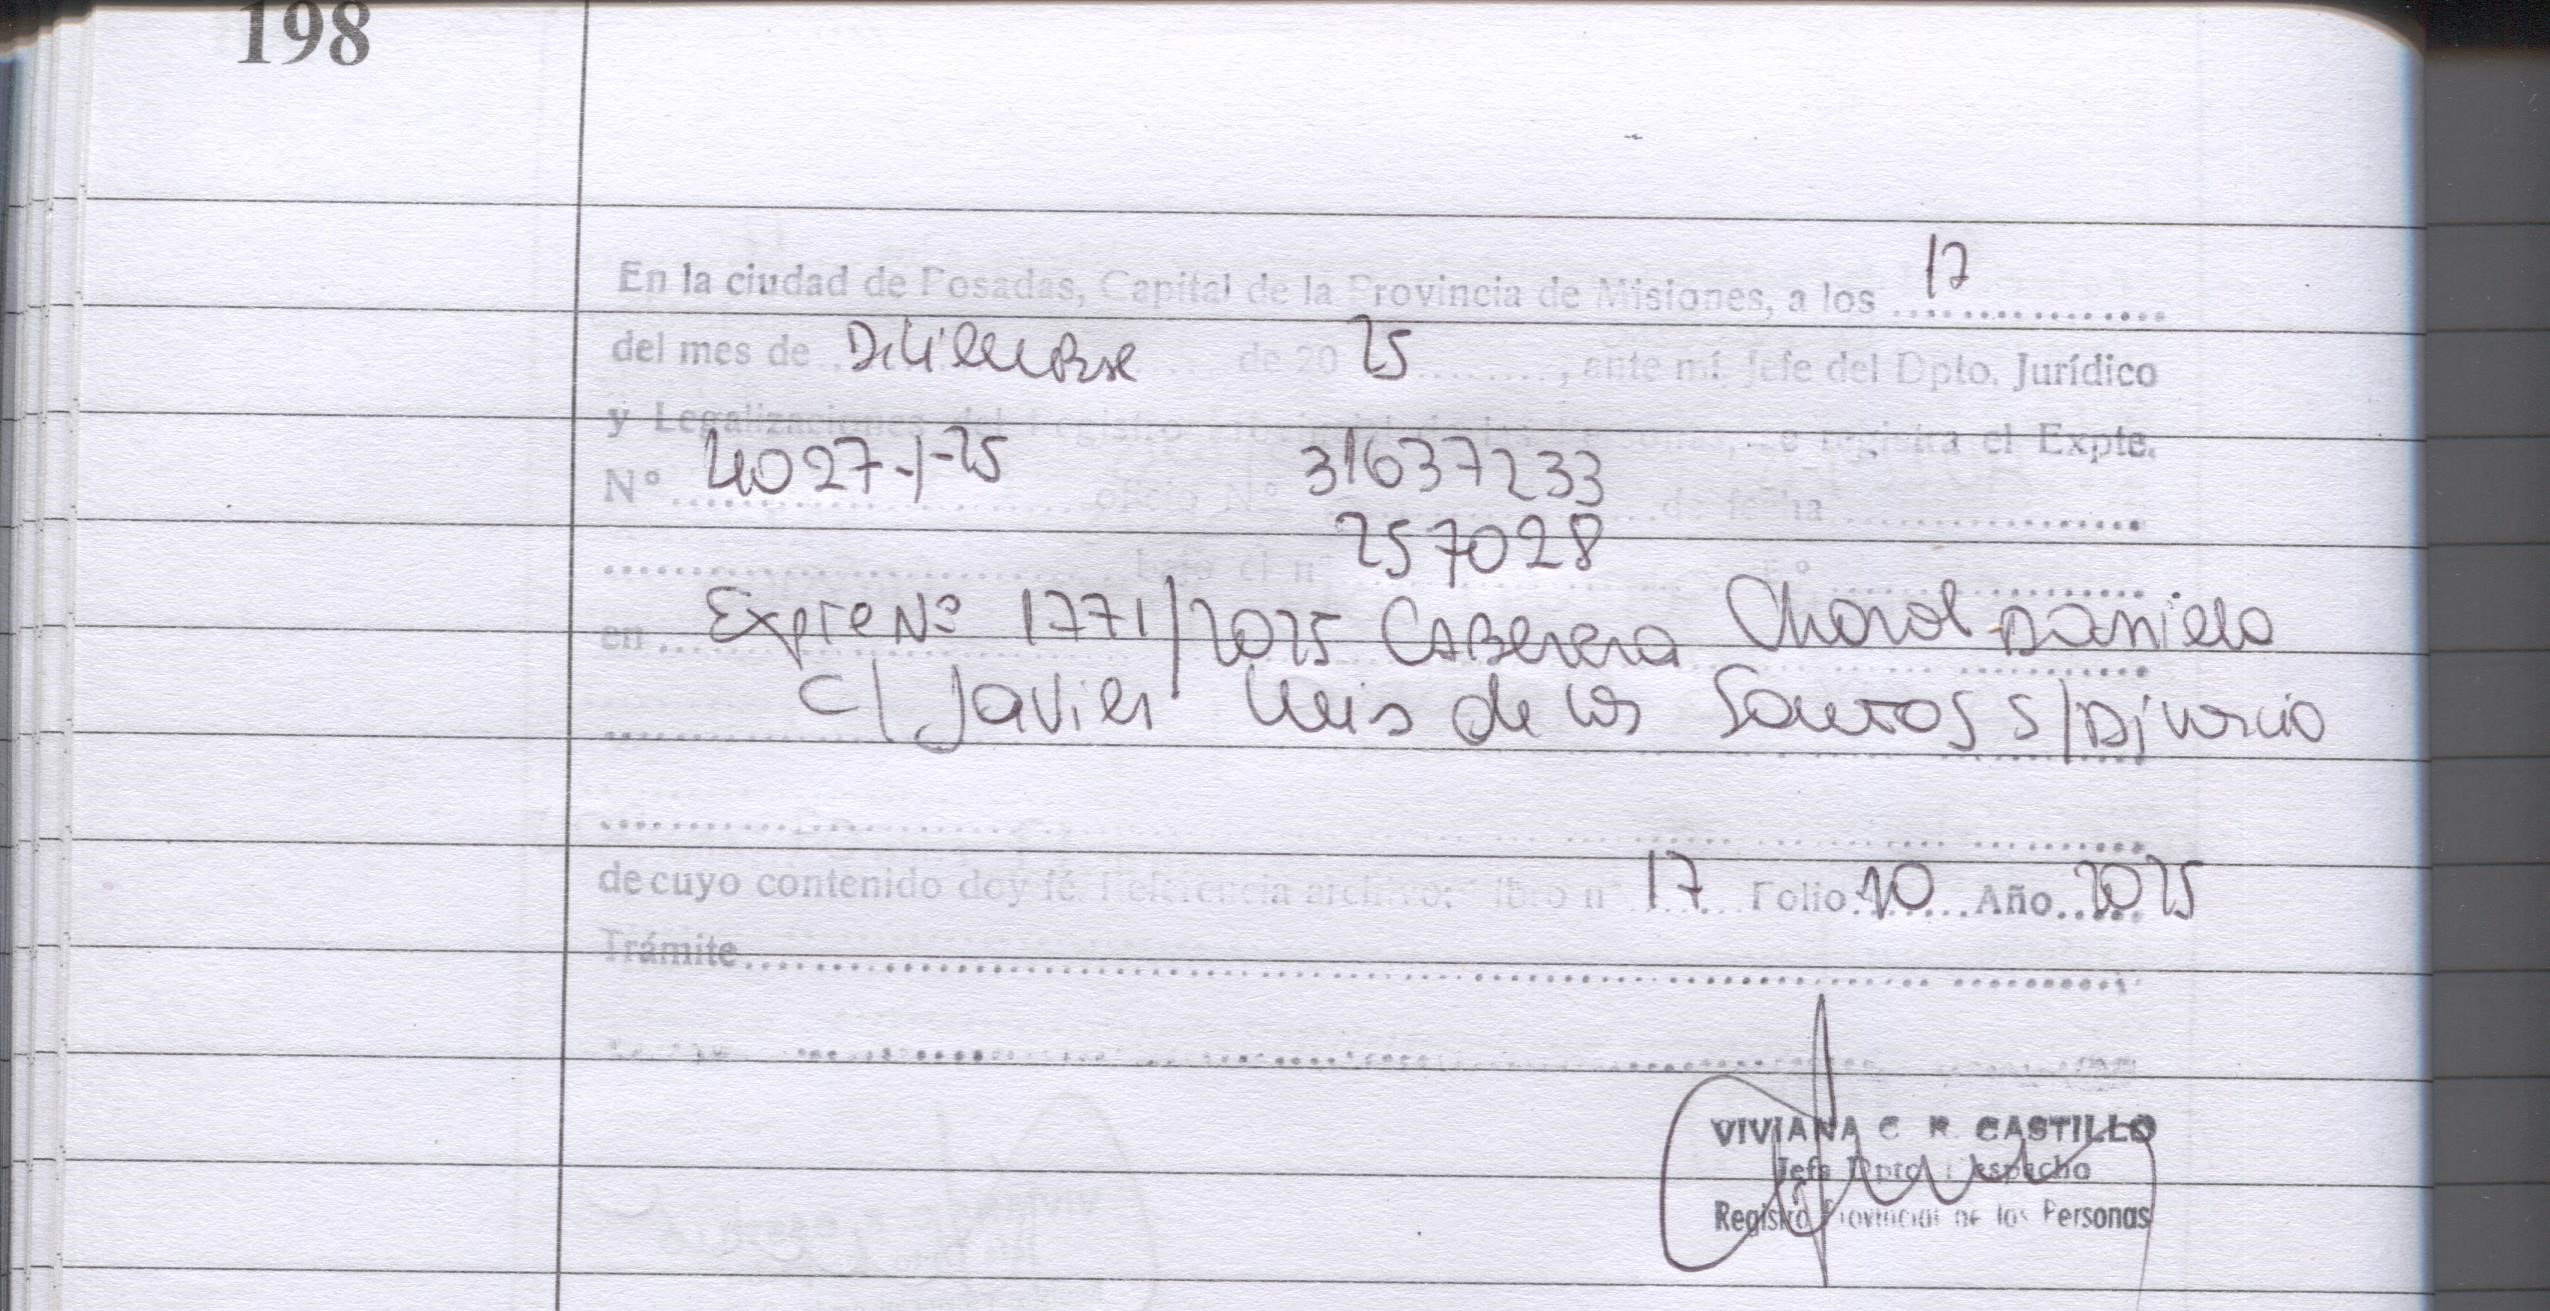 198
En la ciudad de Posadas, Capital de la Provincia de Misiones, a los 17
del mes de Diciembre de 20 25, ante mí, Jefe del Dpto. Jurídico
y Legalizaciones del Registro Provincial de las Personas, se registra el Expte.
N° 4027-J-25 oficio N° 31637233 de fecha
bajo el n° 257028
en Expte Nº 1771/2025 CABRERA Charol Daniela
c/ Javier Luis de los Santos s/Divorcio
de cuyo contenido doy fé. Referencia archivo: libro n° 17 Folio 10 Año 2025
Trámite
VIVIANA C. R. CASTILLO
Jefa Dpto. Despacho
Registro Provincial de las Personas